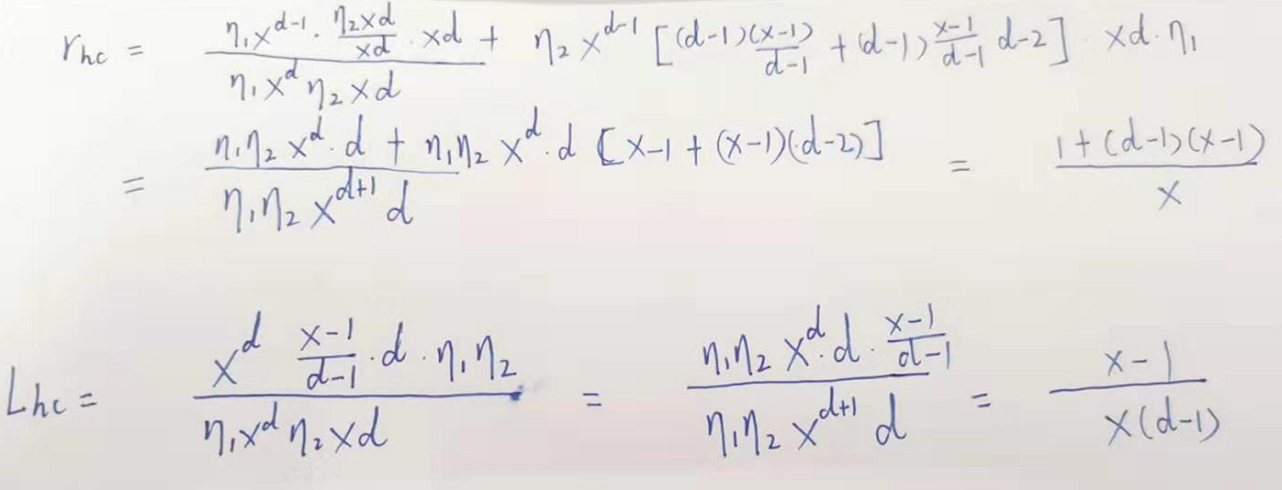 r_{hc} = \frac{η_1 x^{d-1} · \frac{η_2 x d}{x d} · x d + η_2 x^{d-1} [(d-1) \frac{(x-1)}{d-1} + (d-1) \frac{x-1}{d-1} d-2] · x d · η_1}{η_1 x^d η_2 x d}
= \frac{η_1 η_2 x^d · d + η_1 η_2 x^d · d [x-1 + (x-1)(d-2)]}{η_1 η_2 x^{d+1} d} = \frac{1 + (d-1)(x-1)}{x}
L_{hc} = \frac{x^d \frac{x-1}{d-1} · d · η_1 η_2}{η_1 x^d η_2 x d} = \frac{η_1 η_2 x^d · d · \frac{x-1}{d-1}}{η_1 η_2 x^{d+1} d} = \frac{x-1}{x(d-1)}